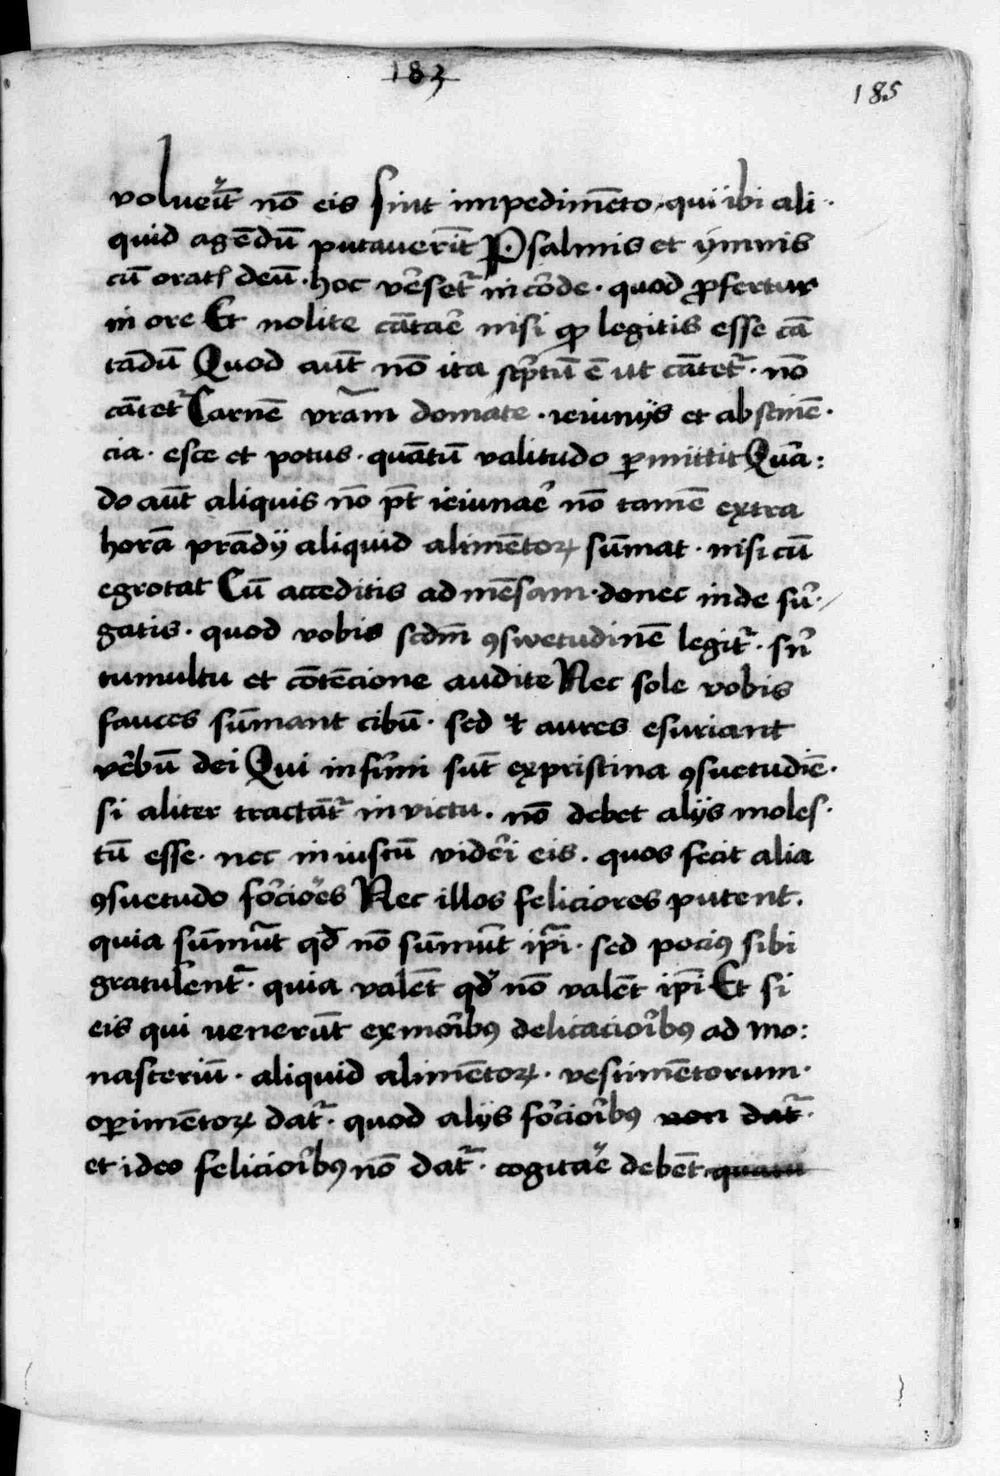 183
185
volueīt nō eis sint impedimēto · qui ibi ali ·
quid agēdū putauerīt Psalmis et ymnis
cū oratʳ deū · hoc v̄set᷑ in corde · quod ꝓfertur
in ore Et nolite cātare nisi qđ legitis esse cā
tādū Quod aut̄ nō ita sc̄ptū ē ut cātet᷑ · nō
cātet᷑ Carnē vrām domate · ieiunijs et abstinē ·
cia · esce et potus · quātū valitudo ꝑmittit Quā :
do aut̄ aliquis nō pt̄ ieiunare nō tamē extra
horā prādij aliquid alimētoꝝ sūmat · nisi cū
egrotat Cū acceditis ad mēsam · donec inde sur ·
gatis · quod vobis scdm̄ ꝯswetudinē legit᷑ · sn̄
tumultu et cōtēcione audite Nec sole vobis
fauces sūmant cibū · sed ⁊ aures esuriant
v̄bū dei Qui infirmi sūt ex pristina ꝯsuetudiē ·
si aliter tractāt᷑ in victu · nō debet alijs moles ·
tū esse · nec iniustū videri eis · quos fecit alia
ꝯsuetudo forcioēs Nec illos feliciores putent ·
quia sūmūt qđ nō sūmūt ip̄i · sed pociꝰ sibi
gratulent᷑ · quia valēt qđ nō valēt ip̄i Et si
eis qui venerūt ex moribꝰ delicacioribꝰ ad mo :
nasteriū · aliquid alimētoꝝ · vestimētorum ·
oꝑimētoꝝ dat᷑ · quod alijs forcioribꝰ non dat᷑ ·
et ideo felicioribꝰ nō dat᷑ · cogitaē debēt quātu